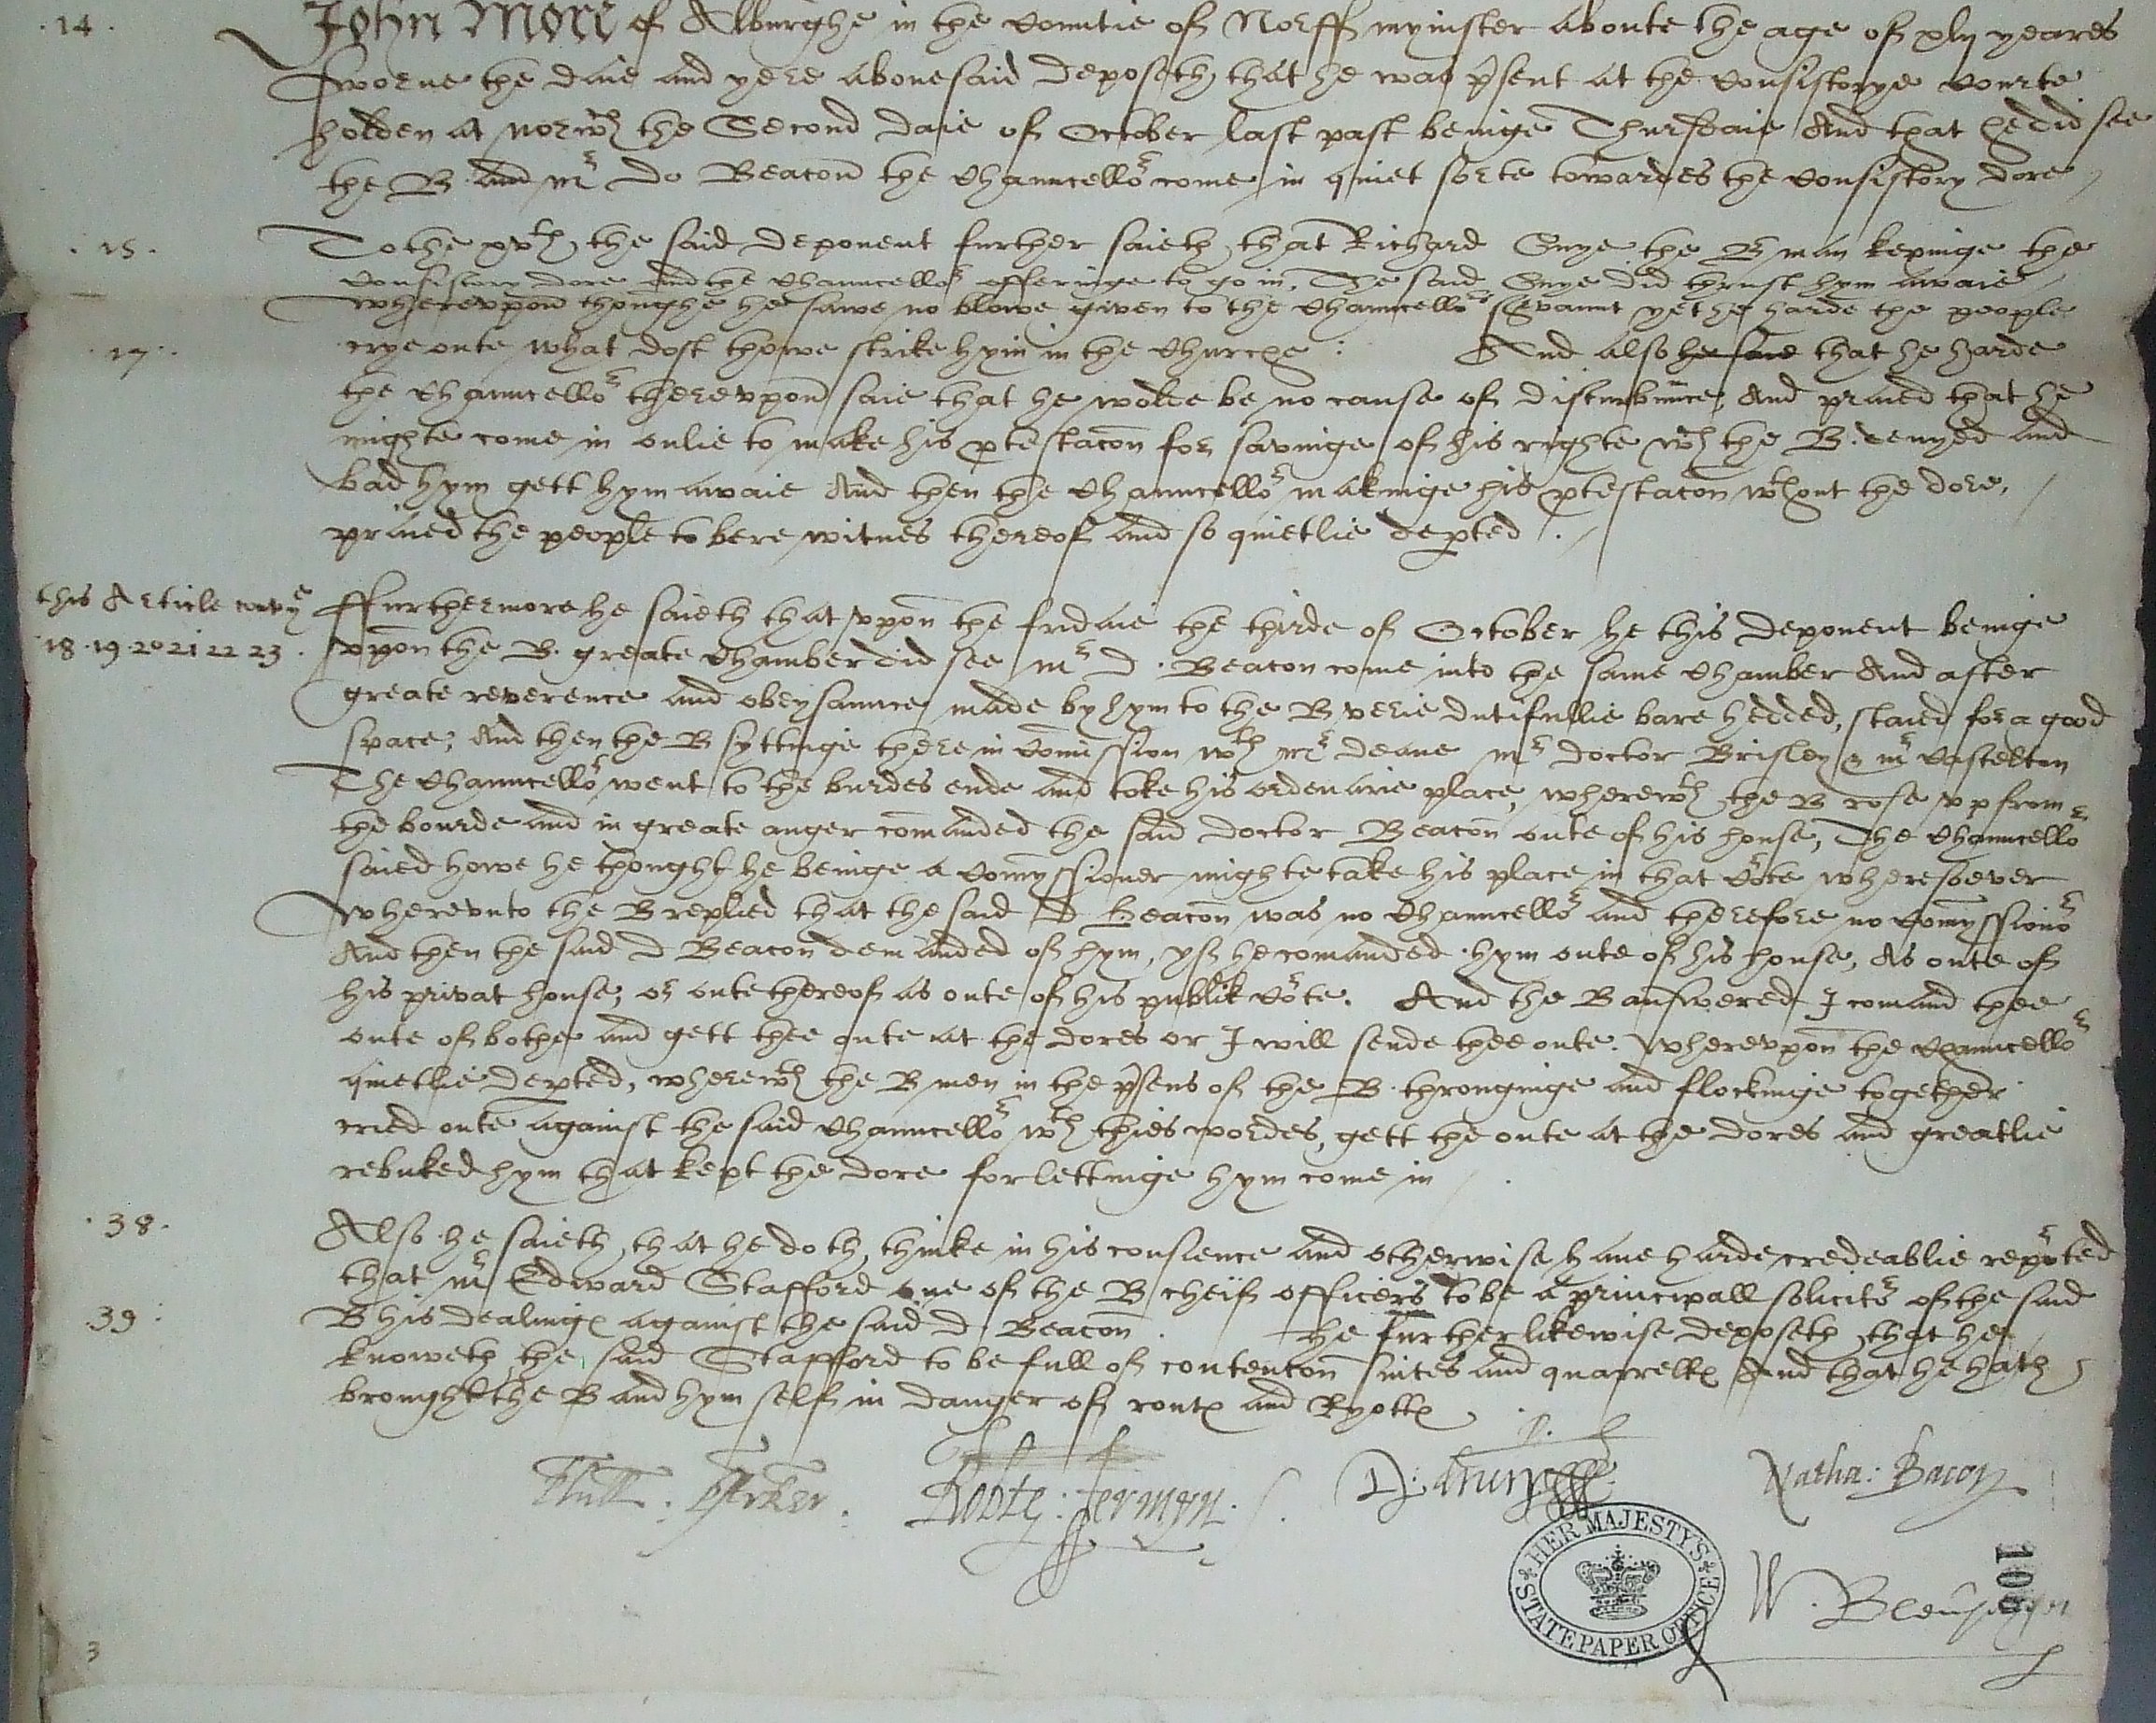 .14. John More of Alburghe in the Countie of Norff mynister aboute the age of xlij yeares
sworne the daie and yere abouesaid deposeth that he was p̃sent at the Consistorye Courte
holden at norwch the Second daie of October last past beinge Thursdaie And that he did see
the B. and mr Do Beacon the Chauncellor come in quiet sorte towardes the Consistory dore
.15. To the xvth the said deponent further saieth, that Richard Snye the B man kepinge the
Consistory dore And the Chauncellor offeringe to go in, The said Snye did thrust hym awaie
wherevppon thoughe he sawe no blowe given to the Chauncellors servaunt yet he harde the people
.17. crye oute what dost thowe strike hym in the Churche : And also he said that he harde
the Chauncellor therevppon saie that he wolde be no cause of disturbunce, And praied that he
mighte come in onlie to make his ptestacon for savinge of his righte wch the B. denyed and
bad hym gett hym awaie And then the Chauncellor makinge his ptestacon wthout the dore,
praied the people to bere witnes thereof and so quietlie depted .
this Article 18 . 19 . 20 21 22 23 . ffurthermore he saieth that vppon the fridaie the thirde of October he this deponent beinge
vppon the B. greate Chamber did see mr D. Beacon come into the same Chamber And after
greate reverence and obeysaunce made by hym to the B verie dutifullie bare hedded, staied for a good
space, And then the B syttinge there in Comission wth mr deane mr doctor Brisley & mr Castelton
The Chauncellor went to the burdes ende and toke his ordenarie place, wherewth the B rose vp from
the bourde and in greate anger comanded the said doctor Beacon oute of his house, The Chauncellor
saied howe he thought he beinge a Comyssioner mighte take his place in that Corte wheresoever
Wherevnto the B replied that the said D Beacon was no Chauncellor and therefore no Comyssionor
And then the said D Beacon demanded of hym, yf he comanded hym oute of his house, As oute of
his privat house, or oute thereof as oute of his publik Corte. And the B answered I comand thee
oute of bothe and gett thee oute at the dores or I will sende thee oute. Wherevpon the Chauncellor
quietlie depted, wherewth the B men in the p̃sens of the B. thronginge and flockinge together
cried oute against the said Chauncellor wth thies wordes, gett the oute at the dores and greatlie
rebuked hym that kept the dore for lettinge hym come in
.38. Also he saieth, that he doth, thinke in his consience and otherwise haue harde credeablie reported
that mr Edward Stafford one of the B cheif officers to be a principall solicitor of the said
.39: B his dealinge against the said D Beacon . He further likewise deposeth, that he
knoweth the said Stafford to be full of contencon suites and quarrelles And that he hath
brought the B and hym self in danger of routes and Ryottes
Parker. Robte: Jermyn. D: Drury Natha: Bacon
HER MAJESTY'S STATE PAPER OFFICE
100
3